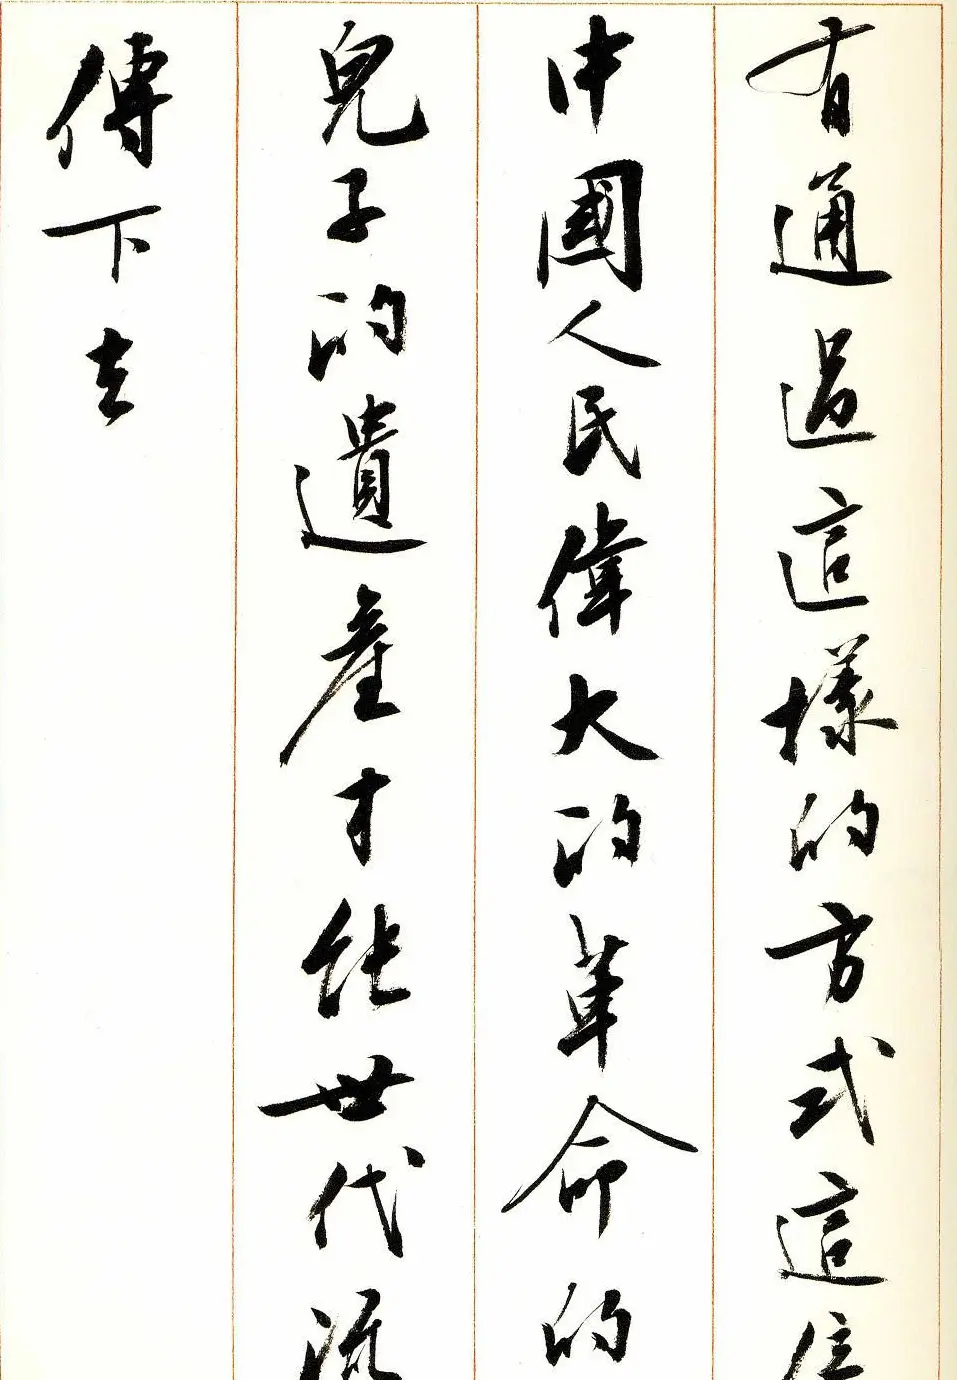 有通過這樣的方式這位
中國人民偉大的革命的
兒子的遺產才能世代流
傳下去